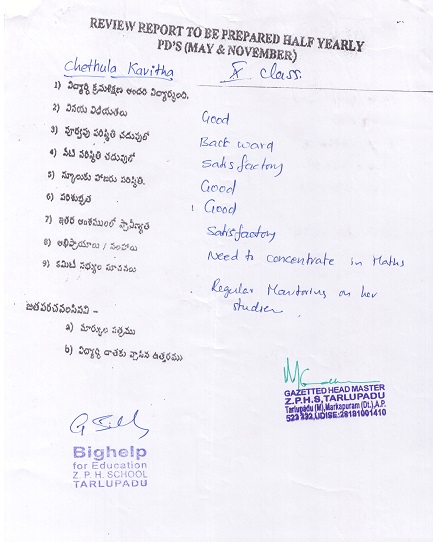 REVIEW REPORT TO BE PREPARED HALF YEARLY
PD'S (MAY & NOVEMBER)
Chethula Kavitha X class
1) విద్యార్థి క్రమశిక్షణ అందరి విద్యార్థులది.
Good
2) వినయ విధేయతలు
Back ward
3) పూర్వపు పరిస్థితి చదువులో
Satisfactory
4) నేటి పరిస్థితి చదువులో
Good
5) స్కూలుకు హాజరు పరిస్థితి.
Good
6) పరిశుభ్రత
Satisfactory
7) ఇతర అంశములలో ప్రావీణ్యత
Need to concentrate in Maths
8) అభిప్రాయాలు / సలహాలు
9) కమిటీ సభ్యుల సూచనలు
Regular Monitoring on her
studies
జతపరచవలసినవి -
a) మార్కుల పత్రము
b) విద్యార్థి దాతకు వ్రాసిన ఉత్తరము
GAZETTED HEAD MASTER
Z.P.H.S, TARLUPADU
Tarlupadu (M), Markapuram (Dt.), A.P.
523 332, UDISE:28181001410
Bighelp
for Education
Z. P. H. SCHOOL
TARLUPADU